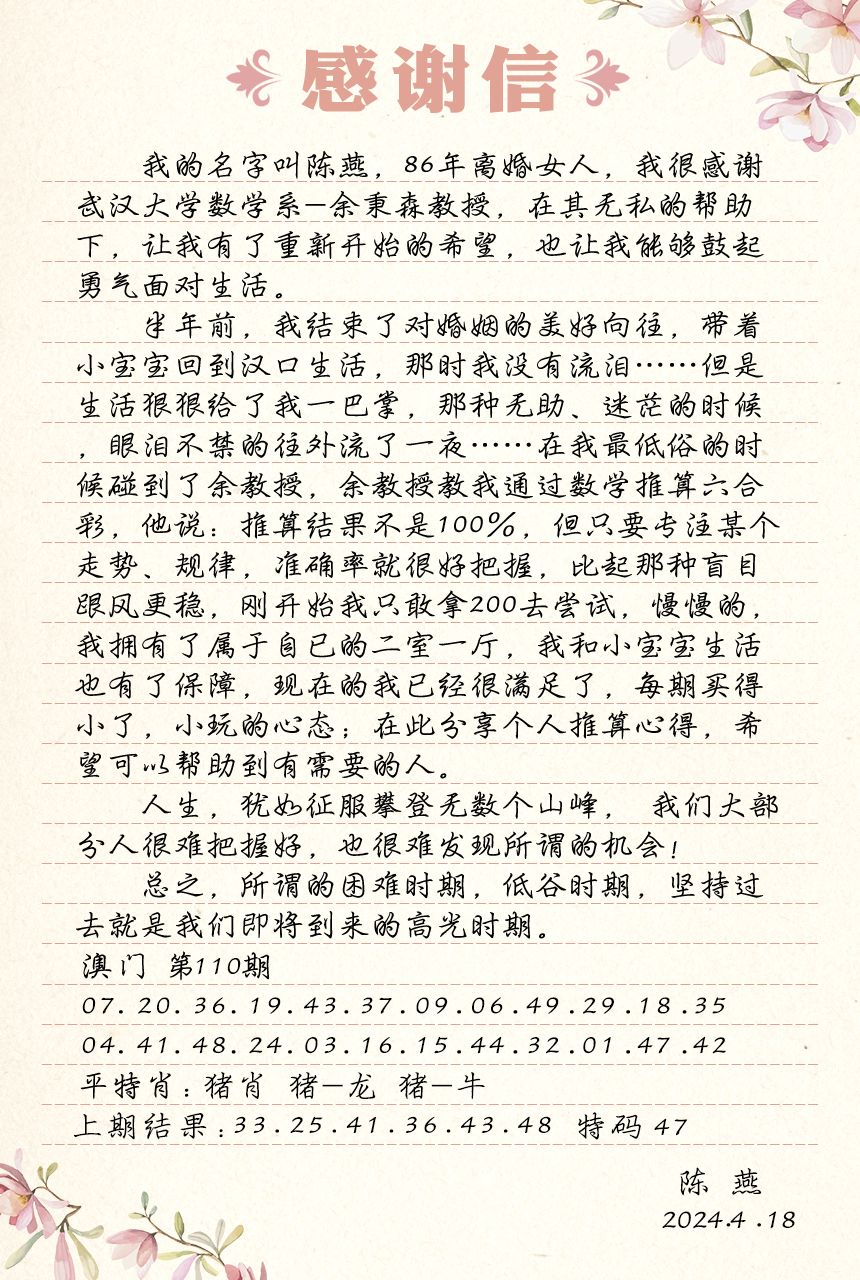 感谢信
我的名字叫陈燕，86年离婚女人，我很感谢
武汉大学数学系—余秉森教授，在其无私的帮助
下，让我有了重新开始的希望，也让我能够鼓起
勇气面对生活。
半年前，我结束了对婚姻的美好向往，带着
小宝宝回到汉口生活，那时我没有流泪……但是
生活狠狠给了我一巴掌，那种无助、迷茫的时候
，眼泪不禁的往外流了一夜……在我最低俗的时
候碰到了余教授，余教授教我通过数学推算六合
彩，他说：推算结果不是100%，但只要专注某个
走势、规律，准确率就很好把握，比起那种盲目
跟风更稳，刚开始我只敢拿200去尝试，慢慢的，
我拥有了属于自已的二室一厅，我和小宝宝生活
也有了保障，现在的我已经很满足了，每期买得
小了，小玩的心态；在此分享个人推算心得，希
望可以帮助到有需要的人。
人生，犹如征服攀登无数个山峰， 我们大部
分人很难把握好，也很难发现所谓的机会！
总之，所谓的困难时期，低谷时期，坚持过
去就是我们即将到来的高光时期。
澳门 第110期
07.20.36.19.43.37.09.06.49.29.18.35
04.41.48.24.03.16.15.44.32.01.47.42
平特肖：猪肖 猪—龙 猪—牛
上期结果：33.25.41.36.43.48 特码 47
陈 燕
2024.4.18